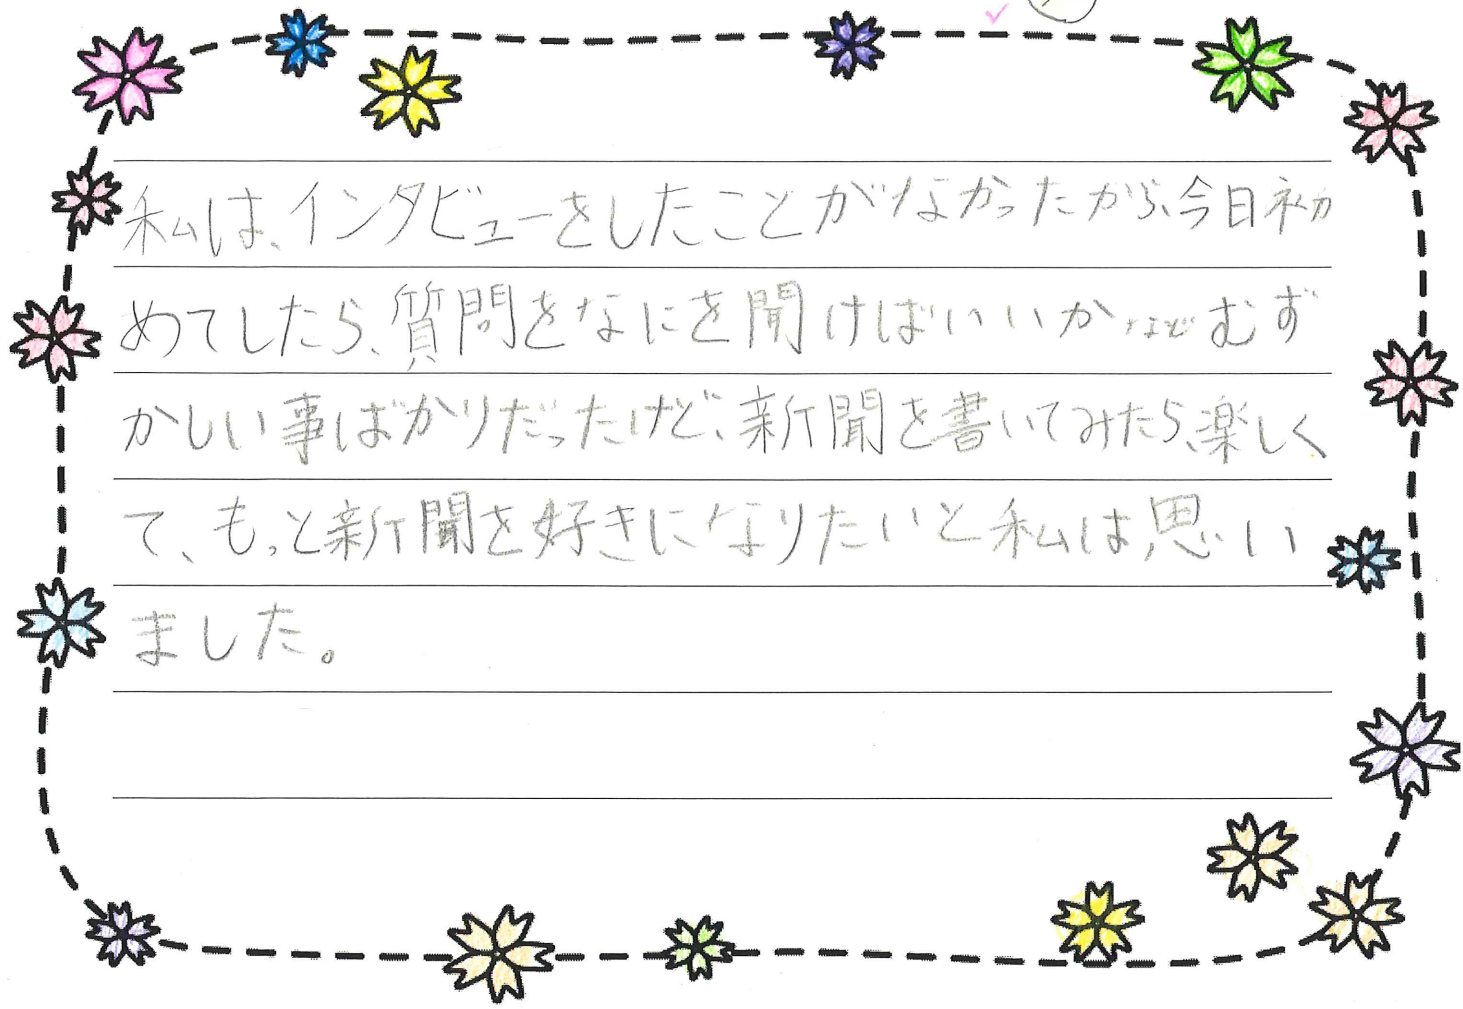 私は、インタビューをしたことがなかったから、今日初
めてしたら、質問をなにを聞けばいいかなどむず
かしい事ばかりだったけど、新聞を書いてみたら、楽しく
て、もっと新聞を好きになりたいと私は、思い
ました。